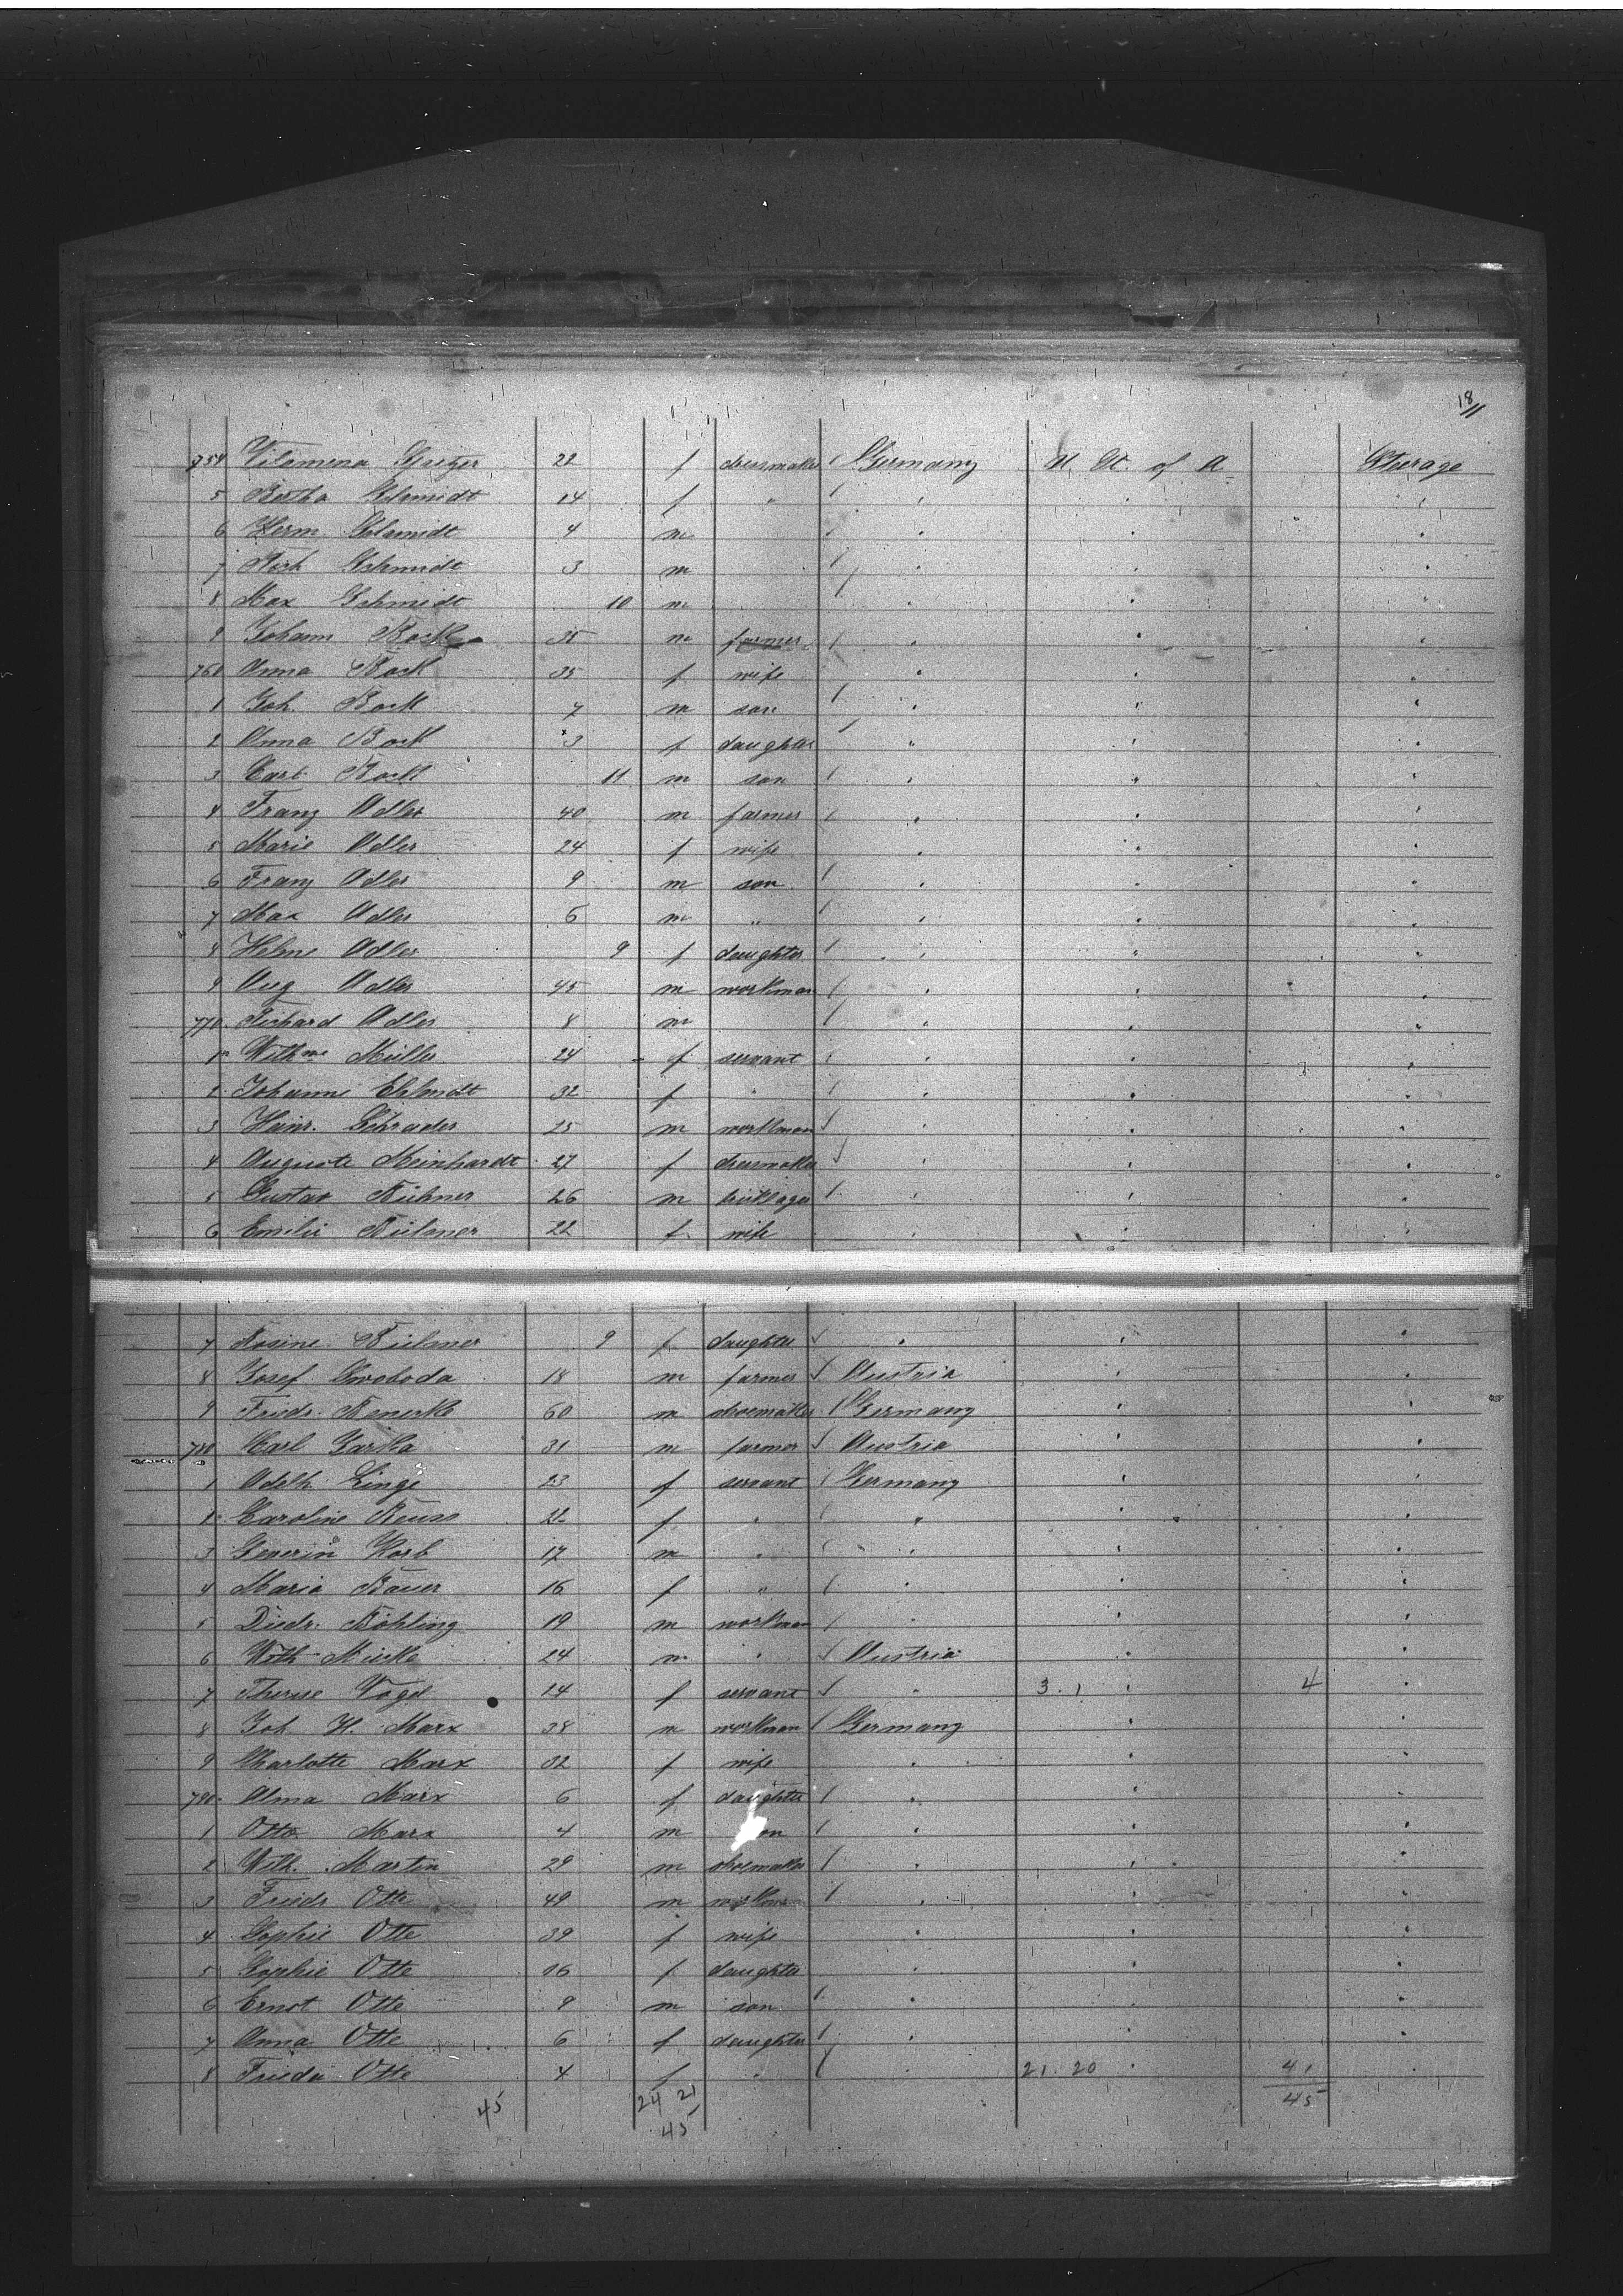 18/11
754 Vilomena 22 f dressmaker / Germany U. St. of A Steerage
5 Bertha Schmidt 14 f " / " " "
6 Herm. Schmidt 4 m / " " "
7 Rich Schmidt 3 m / " " "
8 Max Schmidt 10 m / " " "
9 Johann Bock 35 m farmer / " " "
760 Anna Bock 35 f wife " " "
1 Joh. Bock 7 m son / " " "
2 Anna Bock 3 f daughter / " " "
3 Carl Bock 11 m son / " " "
4 Franz Adler 40 m farmer / " " "
5 Marie Adler 24 f wife " " "
6 Franz Adler 9 m son / " " "
7 Max Adler 6 m " / " " "
8 Helene Adler 9 f daughter / " " "
9 Aug Adler 45 m workman / " " "
770 Richard Adler 8 m / " " "
1 Wilhme Müller 24 f servant / " " "
2 Johanne 32 f " / " " "
3 Heinr. Schrader 25 m workman / " " "
4 Auguste Meinhardt 27 f dressmaker / " " "
5 Gustav 26 m / " " "
6 Emilie 22 f wife " " "
7 Rosine 9 f daughter / " " "
8 Josef Swoboda 18 m farmer / Austria " "
9 Friedr. 60 m shoemaker / Germany " "
780 Carl 31 m farmer / Austria " "
1 Adelh. Linge 23 f servant / Germany " "
2 Caroline Reuss 22 f " / " " "
3 Severin Korb 17 m " / " " "
4 Maria Bauer 16 f " / " " "
5 Diedr. Böhling 19 m workman / " " "
6 Wilh Mielke 24 m " / Austria " "
7 Therese Vogel 24 f servant / " 3. 1 " 4 "
8 Joh. H. Marx 38 m workman / Germany " "
9 Charlotte Marx 32 f wife " " "
790 Alma Marx 6 f daughter / " " "
1 Otto Marx 4 m on / " " "
2 Wilh. Martin 29 m shoemaker / " " "
3 Friedr Otte 49 m workman / " " "
4 Sophie Otte 39 f wife " " "
5 Sophie Otte 16 f daughter " " "
6 Ernst Otte 9 m son / " " "
7 Anna Otte 6 f daughter / " " "
8 Frieda Otte 4 f " / " 21. 20 " 41 "
45 24 21 45
45